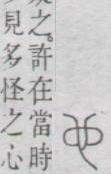 之。許在當時
見多怪之心